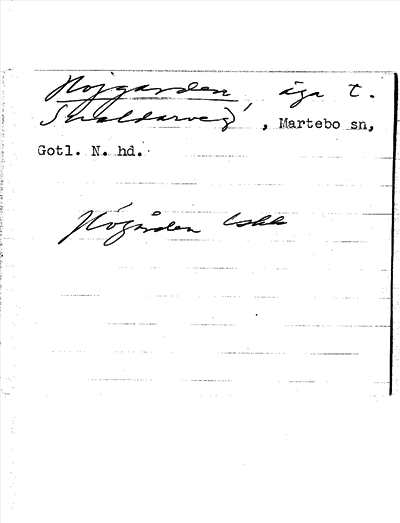 Hojgarden, äga t.
Snaldarveg, Martebo sn,
Gotl. N. hd.
Högården